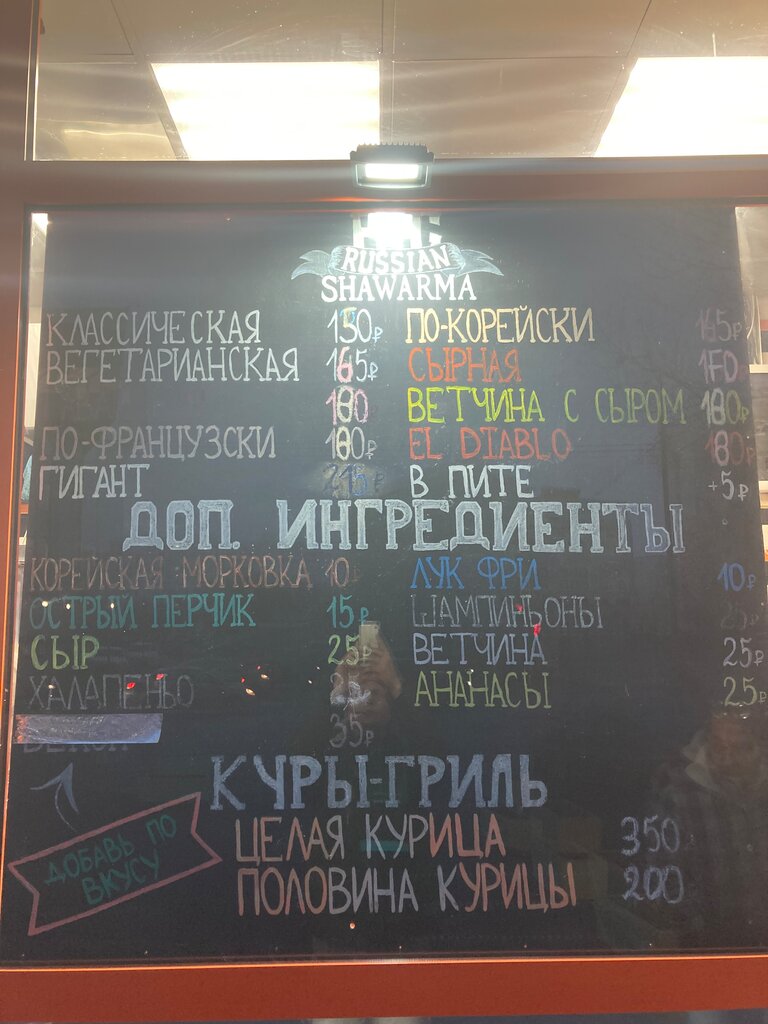 RUSSIAN
SHAWARMA
КЛАССИЧЕСКАЯ 150₽
ВЕГЕТАРИАНСКАЯ 165₽
180
ПО-ФРАНЦУЗСКИ 180₽
ГИГАНТ 215₽
ПО-КОРЕЙСКИ 165₽
СЫРНАЯ
ВЕТЧИНА С СЫРОМ 180₽
EL DIABLO 180₽
В ПИТЕ +5₽
ДОП. ИНГРЕДИЕНТЫ
КОРЕЙСКАЯ МОРКОВКА 10₽
ОСТРЫЙ ПЕРЧИК 15₽
СЫР 25₽
ХАЛАПЕНЬО
35₽
ЛУК ФРИ 10₽
ШАМПИНЬОНЫ 25₽
ВЕТЧИНА 25₽
АНАНАСЫ 25₽
КУРЫ-ГРИЛЬ
ЦЕЛАЯ КУРИЦА 350
ПОЛОВИНА КУРИЦЫ 200
ДОБАВЬ ПО
ВКУСУ